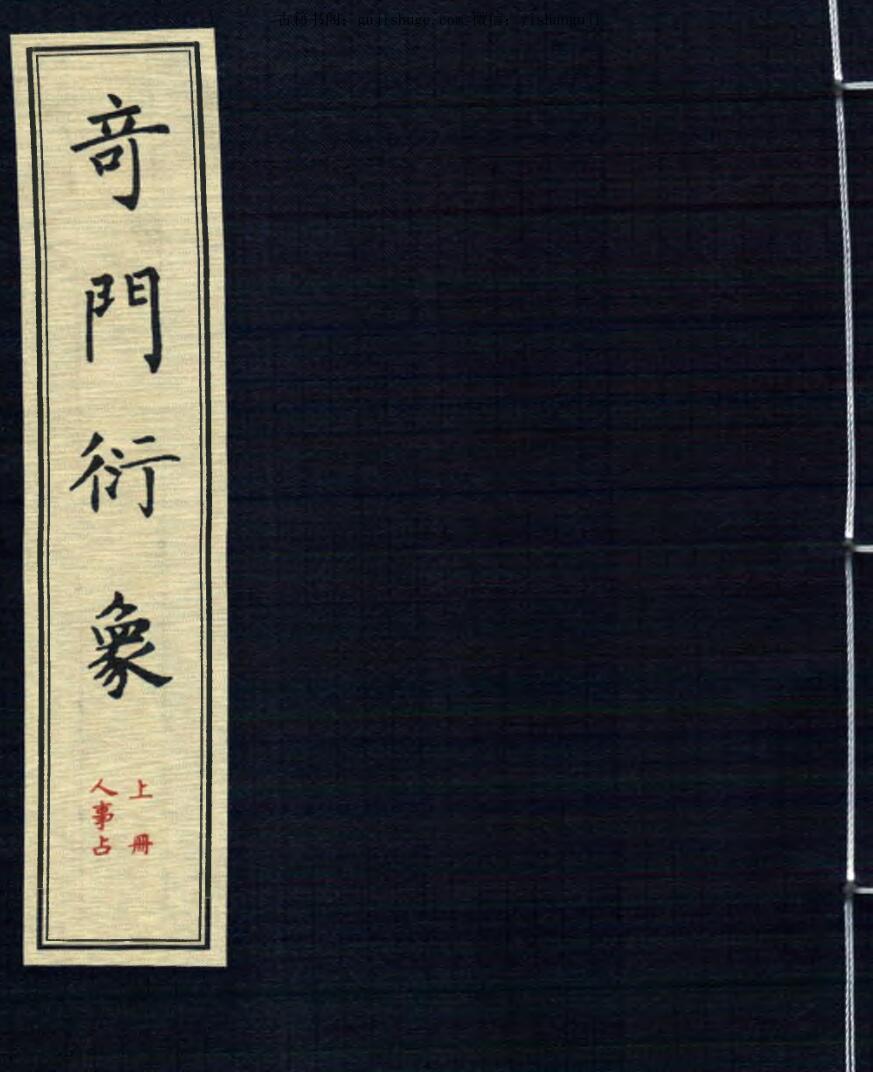 古籍书阁：gujishuge.com 微信：yishuguji
奇門衍象
上冊
人事占